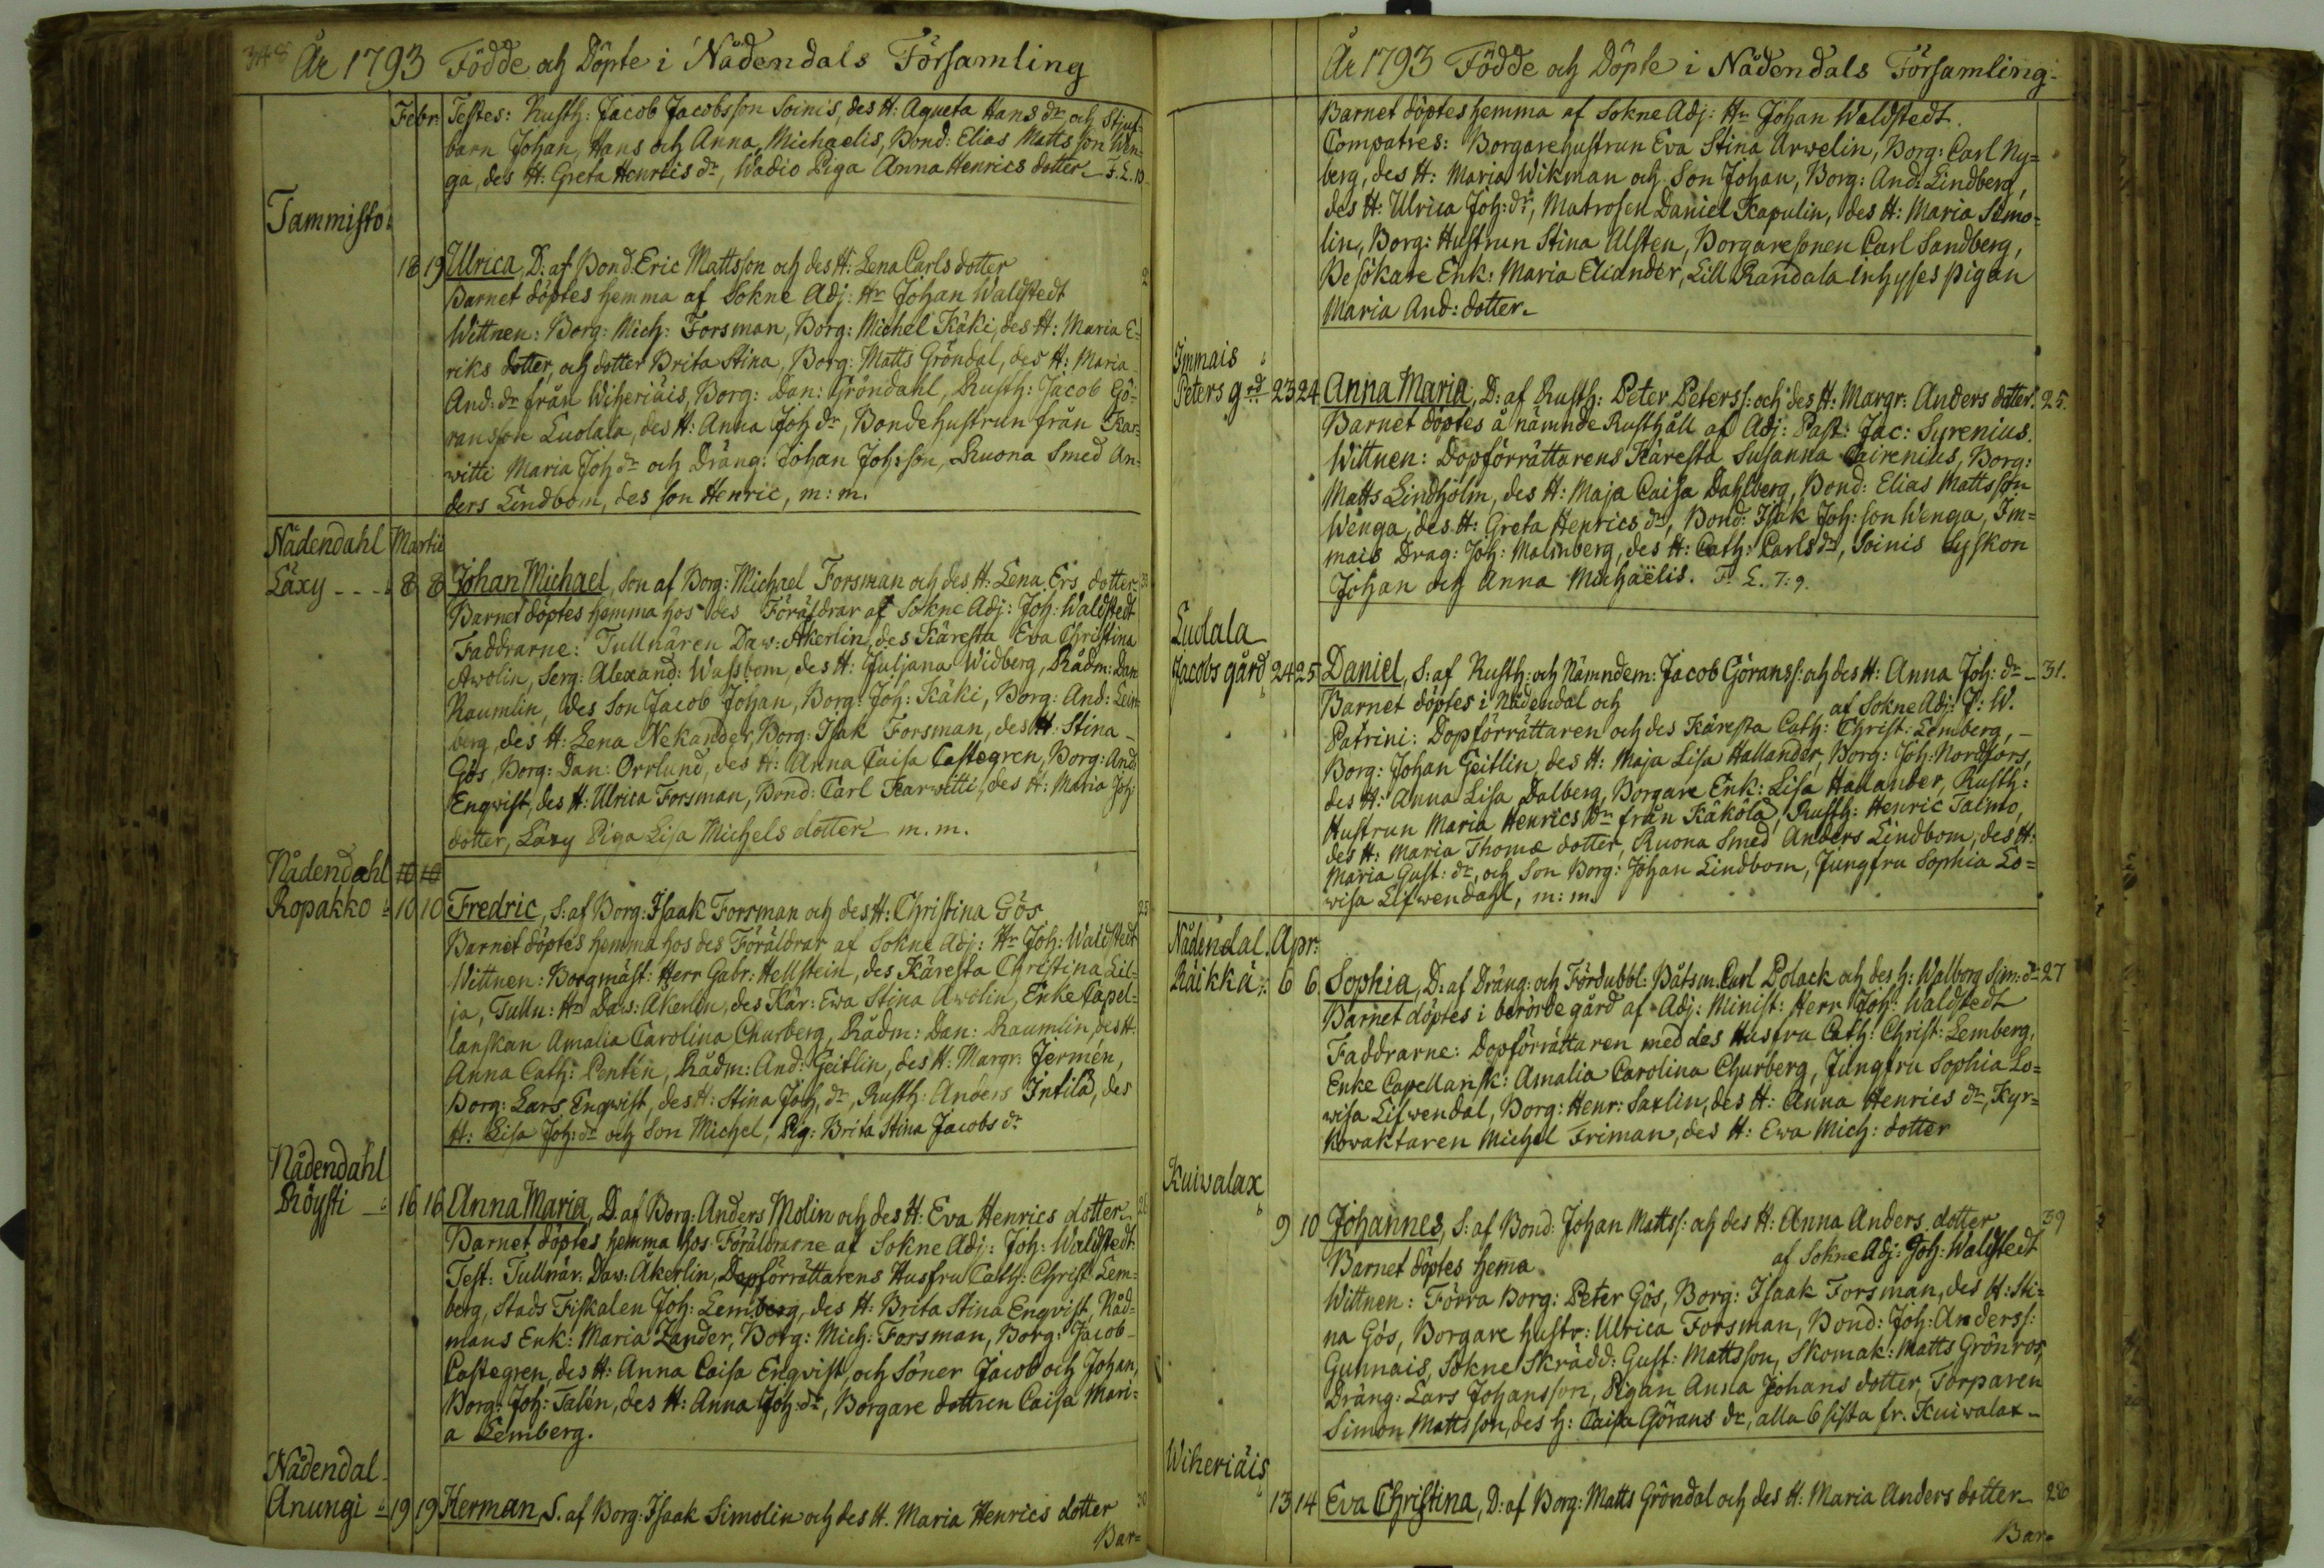 348 År 1793 Födde och Döpte i Nådendals Församling
Febr: Testes: Rusth: Jacob Jacobsson Soinis, des H: Agneta Hans dr och Stjuf-
barn Johan, Hans och Anna Michaelis, Bond: Elias Matts son Wen-
ga, des H: Greta Henrics dr, Wadio Piga Anna Henrics dotter. F.L.10
Tammisto:
18 19 Ulrica, D: af Bond: Eric Mattsson och des H: Lena Carls dotter
Barnet döptes hemma af Sokne Adj: Hr Johan Waldstedt
Wittnen: Borg: Mich: Forsman, Borg: Michel Käki, des H: Maria E-
riks dotter, och dotter Brita Stina, Borg: Matts Gröndal, des H: Maria
And: dr från Wiheriäis, Borg: Dan: Gröndahl, Rusth: Jacob Gö-
ransson Luolala, des H: Anna Joh dr, Bondehustrun från Kar-
witti Maria Joh dr och Dräng: Johan Johsson, Ruona Smed An-
ders Lindbom, des son Henric, m: m.
Nådendahl Martii
Läxy - - - : 8 8 Johan Michael, Son af Borg: Michael Forsman och des H: Lena Ers dotter
Barnet döptes hemma hos des Föräldrar af Sokne Adj: Joh: Waldstedt
Faddrarne: Tullnären Daw: Åkerlin, des Käresta Eva Christina
Awolin, Serg: Alexand: Wassbom, des H: Juljana Widberg, Rådm: Dan
Raumlin, des Son Jacob Johan, Borg: Joh: Käki, Borg: And: Lein-
berg, des H: Lena Nekander, Borg: Isak Forsman, des H: Stina
Gös, Borg: Dan: Orrlund, des H: Anna Caisa Castegren, Borg: And
Enqwist, des H: Ulrica Forsman, Bond: Carl Karwitti, des H: Maria Joh
dotter, Läxy Piga Lisa Michels dotter m. m.
Nådendahl 10 10
Ropakko : 10 10 Fredric, S: af Borg: Isaak Forsman och des H: Christina Gös 25
Barnet döptes hemma hos des Föräldrar af Sokne Adj: Hr Joh: Waldstedt
Wittnen: Borgmäst: Herr Gabr: Hellstein, des Käresta Christina Lil-
ja, Tulln: Hr Daw: Åkerlin, des Kär: Ewa Stina Awolin, Enke Capel-
lanskan Amalia Carolina Churberg, Rådm: Dan: Raumlin, des H:
Anna Cath: Pentén, Rådm: And: Geitlin, des H: Margr: Jermén,
Borg: Lars Enqwist, des H: Stina Joh, dr, Rusth: Anders Intilä, des
H: Lisa Joh: dr och Son Michel, Pig: Brita Stina Jacobs dr
Nådendahl
Röysti - : 16 16 Anna Maria, D: af Borg: Anders Molin och des H: Eva Henrics dotter
Barnet döptes hemma hos Föräldrarne af Sokne Adj: Joh: Waldstedt
Test: Tullnär: Daw: Åkerlin, Dopförrättarens Husfru Cath: Christ: Lem-
berg, Stads Fiskalen Joh: Lemberg, des H: Brita Stina Enqvist, Råd-
mans Enk: Maria Zander, Borg: Mich: Forsman, Borg: Jacob
Castegren, des H: Anna Caisa Enqvist, och Söner Jacob och Johan,
Borg: Joh: Talén, des H: Anna Joh: dr, Borgare dottren Caisa Mari-
a Lemberg.
Nådendal
Anungi : 19 19 Herman, S. af Borg: Isaak Simolin och des H. Maria Henrics dotter
Bar=
År 1793 Födde och Döpte i Nådendals Församling
Barnet döptes hemma af Sokne Adj: Hr Johan Waldstedt.
Compatres: Borgarehustrun Eva Stina Arwelin, Borg: Carl Ny=
berg, des H: Maria Wikman och Son Johan, Borg: And: Lindberg,
des H: Ulrica Joh: dr, Matrosen Daniel Kapulin, des H: Maria Simo=
lin, Borg: Hustrun Stina Alsten, Borgaresonen Carl Sandberg,
Besökare Enk: Maria Eliander, Lill Randala Inhyses pigan
Maria And: dotter.
Immais :
Peters grd 23 24 Anna Maria, D: af Rusth: Peter Peterss: och des H: Margr: Anders dotter. 25.
Barnet döptes å nämnde Rusthåll af Adj: Past: Jac: Syrenius.
Wittnen: Dopförrättarens Käresta Susanna Cairenius, Borg:
Matts Lindholm, des H: Maja Caisa Dahlberg, Bond: Elias Mattsson
Wenga, des H: Greta Henrics dr, Bond: Isak Joh: son Wenga, Im=
mais Drag: Joh: Malmberg, des H: Cath: Carls dr, Soinis Syskon
Johan och Anna Michaëlis. F. L. 7: 9.
Luolala
Jacobs gård 24 25 Daniel, S: af Rusth: och Nämndem: Jacob Göranss: och des H: Anna Joh: dr 31.
Barnet döptes i Nådendal och af Sokne Adj: J: W.
Patrini: Dopförrättaren och des Käresta Cath: Christ: Lemberg,
Borg: Johan Geitlin, des H: Maja Lisa Hallander, Borg: Joh: Nordfors,
des H: Anna Lisa Dalberg, Borgare Enk: Lisa Hallander, Rusth:
Hustrun Maria Henrics dr från Käkölä, Rusth: Henric Talmo,
des H: Maria Thomæ dotter, Ruona Smed Anders Lindbom, des H:
Maria Gust: dr, och Son Borg: Johan Lindbom, Jungfru Sophia Lo=
wisa Lifwendahl, m: m.
Nådendal. Apr:
Räikkä : 6 6 Sophia, D: af Dräng: och Fördubbl: Båtsm: Carl Polack och des H: Walborg Sim: dr 27
Barnet döptes i berörde gård af Adj: Minist: Herr Joh: Waldstedt
Faddrarne: Dopförrättaren med des Husfru Cath: Christ: Lemberg,
Enke Capellansk: Amalia Carolina Churberg, Jungfru Sophia Lo=
wisa Lifwendal, Borg: Henr: Saxlin, des H: Anna Henrics dr, Kyr=
kowaktaren Michel Friman, des H: Ewa Mich: dotter
Kuiwalax
9 10 Johannes, S: af Bond: Johan Mattss: och des H: Anna Anders dotter 39
Barnet döptes hema af Sokne Adj: Joh: Waldstedt
Wittnen: Förra Borg: Peter Gös, Borg: Isaak Forsman, des H: Sti=
na Gös, Borgare hustr: Ulrica Forsman, Bond: Joh: Anderss:
Gunnais, Sokne Skrädd: Gust: Mattsson, Skomak: Matts Grönros,
Dräng: Lars Johansson, Pigan Anna Johans dotter, Torparen
Simon Mattsson, des H: Caisa Görans dr, alla 6 sista fr. Kuiwalax
Wiheriäis
13 14 Eva Christina, D: af Borg: Matts Gröndal och des H: Maria Anders dotter 28
Bar=